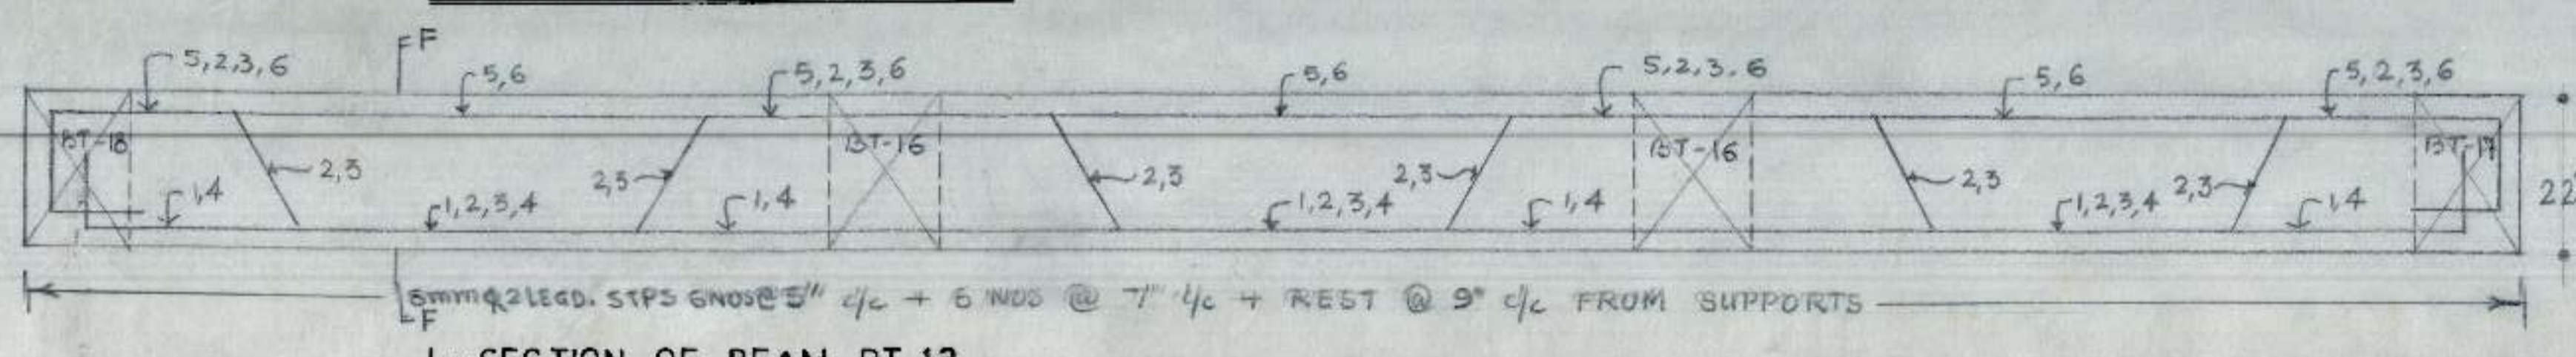 F
5,2,3,6
5,6
5,2,3,6
5,6
5,2,3.6
5,6
5,2,3,6
BT-18
BT-16
BT-16
BT-17
2,3
2,3
2,3
2,3
2,3
2,3
22"
1,4
1,2,3,4
1,4
1,2,3,4
1,4
1,2,3,4
1,4
6mmφ2LEGD. STPS 6NOS@5" c/c + 6 NOS @ 7" c/c + REST @ 9" c/c FROM SUPPORTS
F
L-SECTION OF BEAM BT-12